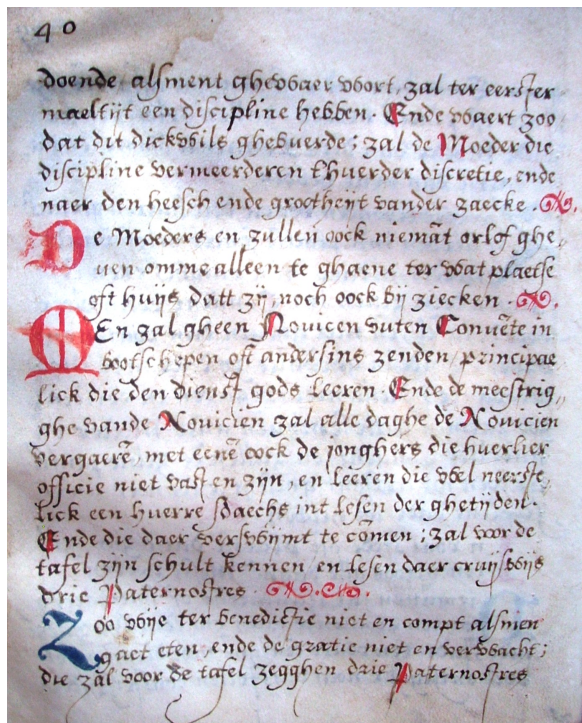 40
doende alsment ghevvaer vvort, zal ter eerster
maeltijt een discipline hebben. Ende vvaert zoo
dat dit dickvvils ghebuerde; zal de Moeder die
discipline vermeerderen t'huerder discretie, ende
naer den heesch ende grootheijt vander zaecke.
De Moeders en zullen oock niemāt orlof ghe,,
uen omme alleen te ghaene ter vvat plaetse
oft huijs datt zij, noch oock bij ziecken.
MEn zal gheen Novicen vuten Convēte in
bootschepen oft andersins zenden, principae
lick die den dienst gods leeren. Ende de meestrig,,
ghe vande Novicien zal alle daghe de Novicien
vergaerē, met eenē oock de jonghers die huerlier
officie niet vast en zijn, en leeren die vvel neerste,,
lick een huerre sdaechs int lesen der ghetijden.
Ende die daer versvvijmt te cōmen; zal voor de
tafel zijn schult kennen en lesen daer cruijsvvijs
drie Paternostres.
Zoo vvije ter benedictie niet en compt alsmen
gaet eten, ende de gratie niet en vervvacht;
die zal voor de tafel zegghen drie Paternostres